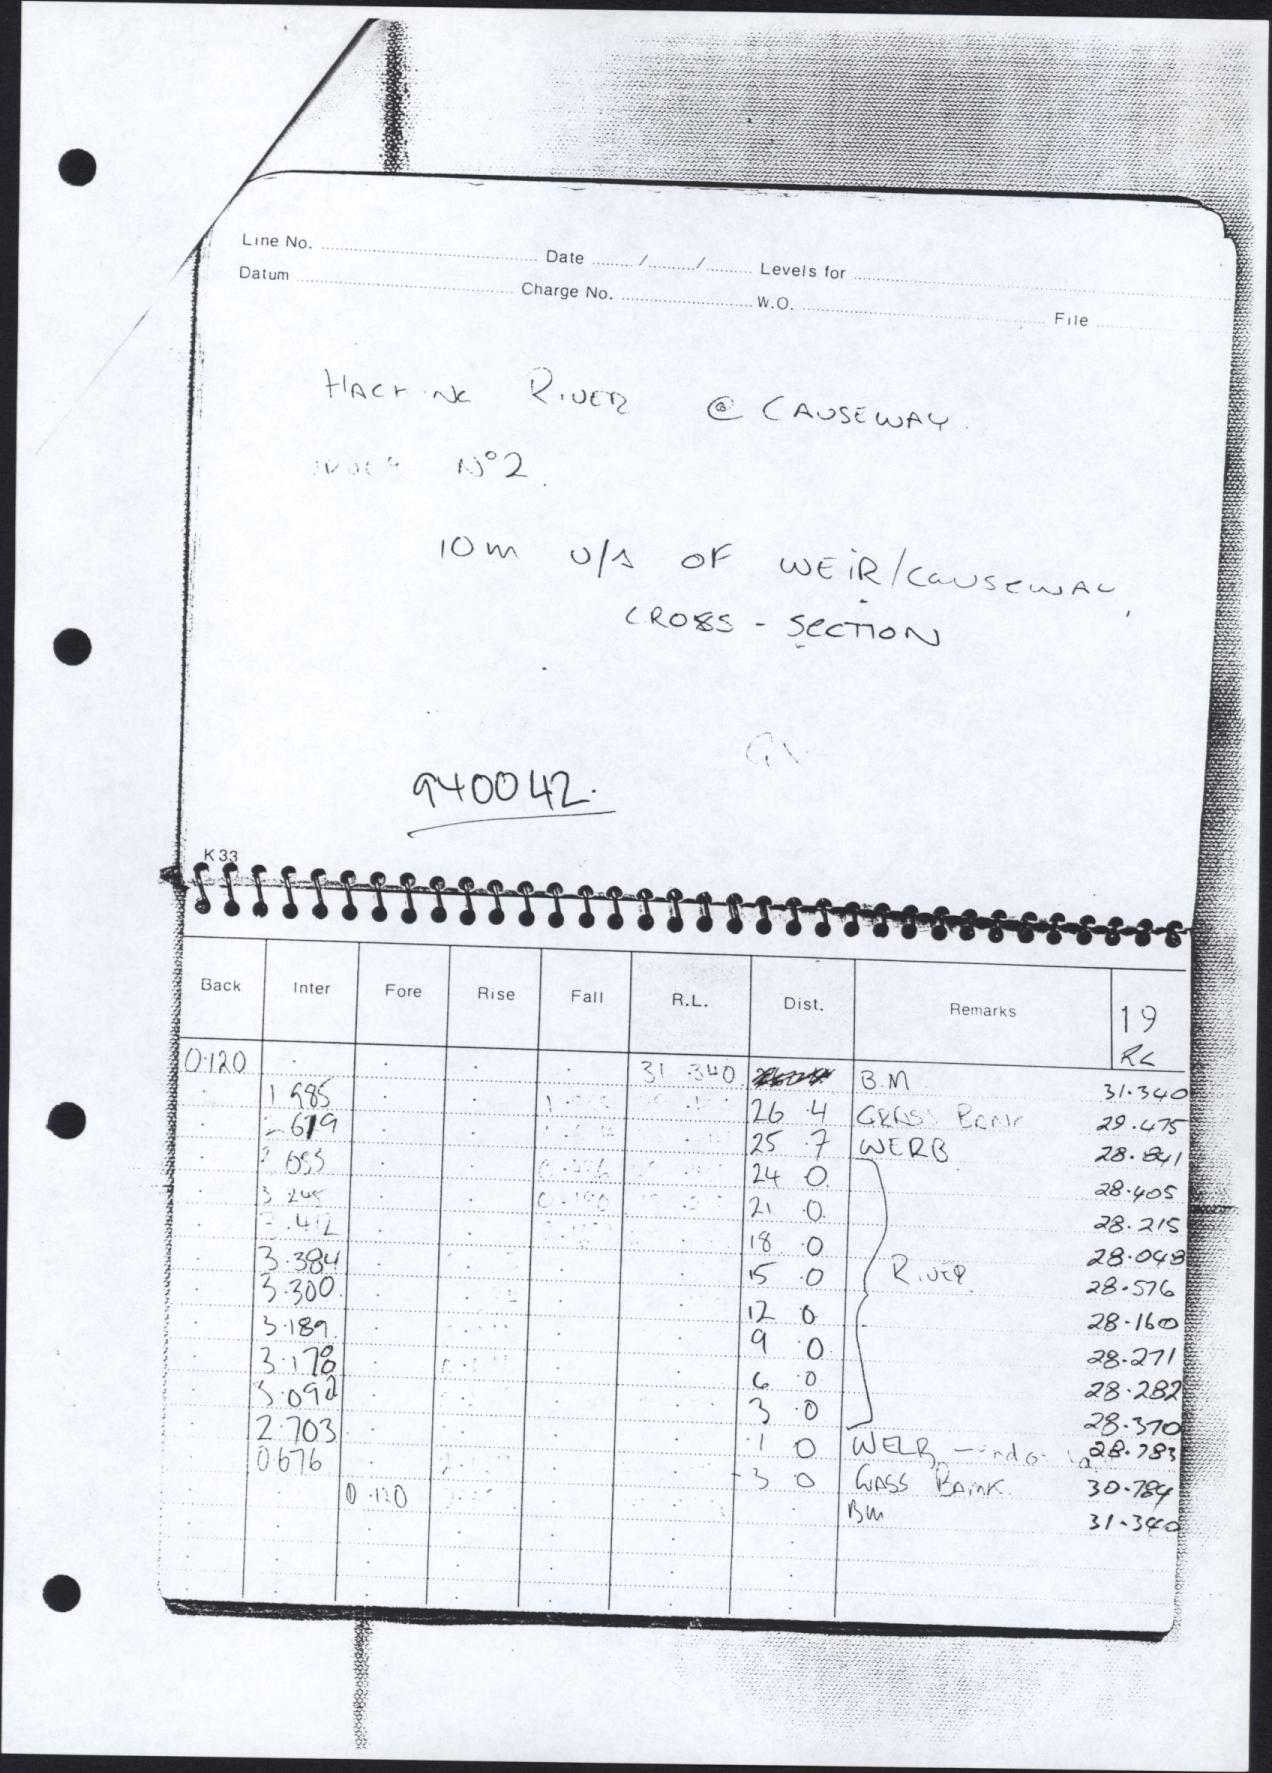 Line No. Date / / Levels for
Datum Charge No. W.O. File
HACKING RIVER @ CAUSEWAY.
N°2.
10m u/s OF WEIR/CAUSEWAY,
CROSS - SECTION
940042.
K 33
Back Inter Fore Rise Fall R.L. Dist. Remarks 19
RL
0.120 31.340 B.M 31.340
1.985 26.4 GRASS BANK 29.475
2.619 25.7 WERB 28.841
3.055 24.0 28.405
3.245 0.190 21.0 28.215
3.412 18.0 28.048
3.384 15.0 RIVER 28.576
3.300 12.0 28.160
3.189 9.0 28.271
3.178 6.0 28.282
3.092 3.0 28.370
2.703 1.0 WELB 28.783
0.676 -3.0 GRASS BANK 30.784
0.120 BM 31.340